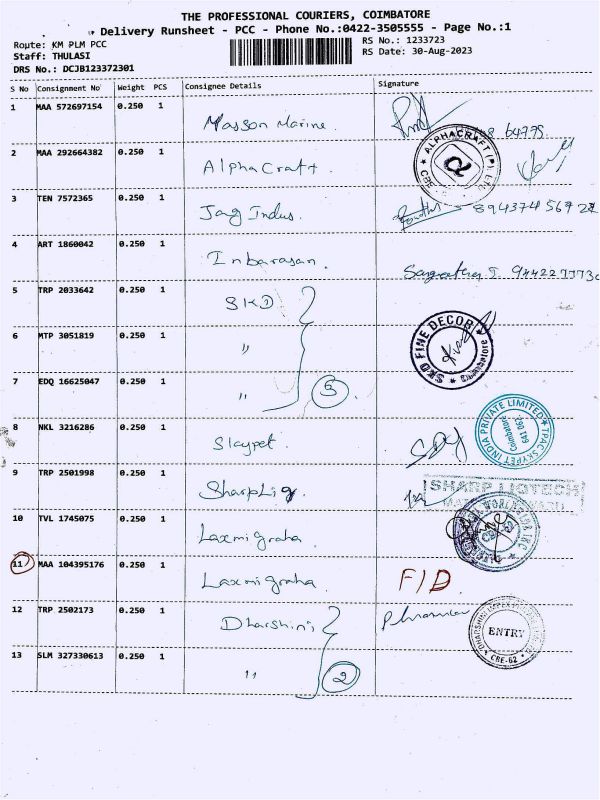 THE PROFESSIONAL COURIERS, COIMBATORE
Delivery Runsheet - PCC - Phone No.:0422-3505555 - Page No.:1
Route: KM PLM PCC
RS No.: 1233723
Staff: THULASI
RS Date: 30-Aug-2023
DRS No.: DCJB123372301
S No Consignment No Weight PCS Consignee Details Signature
1 MAA 572697154 0.250 1 Masson Marine
2 MAA 292664382 0.250 1 AlphaCraft. ALPHACRAFT (P) LTD CBE
3 TEN 7572365 0.250 1 Jang Indus. 8943745672
4 ART 1860042 0.250 1 Inbarasan.
5 TRP 2033642 0.250 1 SKD
6 MTP 3051819 0.250 1 " SKD FINE DECOR Coimbatore
7 EDQ 16625047 0.250 1 " 3
8 NKL 3216286 0.250 1 Skypet. TPAC SKYPET INDIA PRIVATE LIMITED Coimbatore 641 062
9 TRP 2501998 0.250 1 SharpLig SHARP LIGTECH
10 TVL 1745075 0.250 1 Laxmi Graha.
11 MAA 104395176 0.250 1 Laxmi Graha. F/D.
12 TRP 2502173 0.250 1 Dharshini ENTRY CBE-62
13 SLM 327330613 0.250 1 " 2